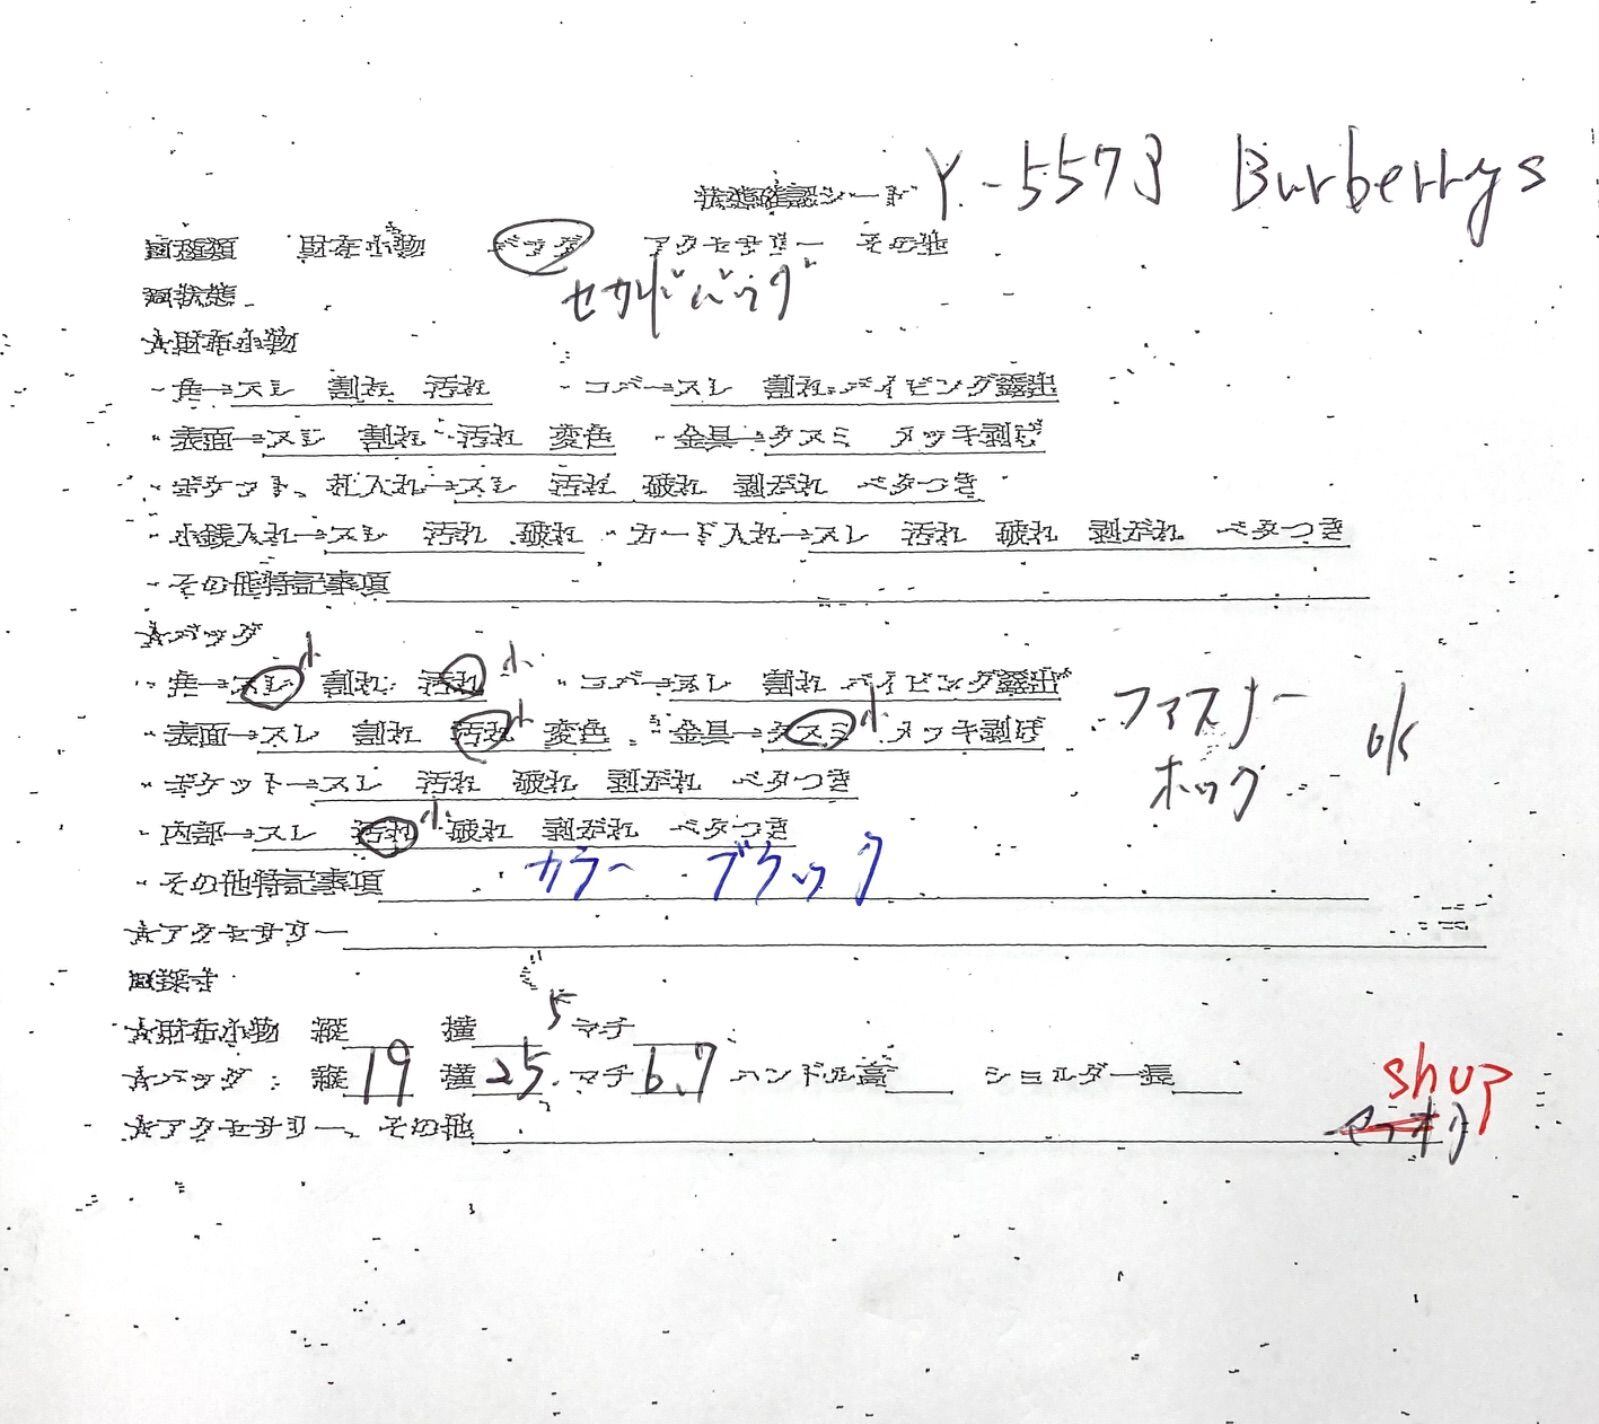 状態確認シート Y-5573 Burberrys
■種類 財布小物 バッグ アクセサリー その他
セカンドバッグ
■状態
★財布小物
・角→スレ 割れ 汚れ ・コバ→スレ 割れ パイピング露出
・表面→スレ 割れ 汚れ 変色 ・金具→クスミ メッキ剥げ
・ポケット、札入れ→スレ 汚れ 破れ 剥がれ ベタつき
・小銭入れ→スレ 汚れ 破れ ・カード入れ→スレ 汚れ 破れ 剥がれ ベタつき
・その他特記事項
★バッグ
・角→スレ小 割れ 汚れ小 ・コバ→スレ 割れ パイピング露出
・表面→スレ 割れ 汚れ小 変色 ・金具→クスミ小 メッキ剥げ
ファスナー
ホック ok
・ポケット→スレ 汚れ 破れ 剥がれ ベタつき
・内部→スレ 汚れ小 破れ 剥がれ ベタつき
・その他特記事項 カラー ブラック
★アクセサリー
■採寸
★財布小物 縦 横 マチ
★バッグ:縦19 横25.5 マチ6.7 ハンドル高 ショルダー長
shop
★アクセサリー、その他